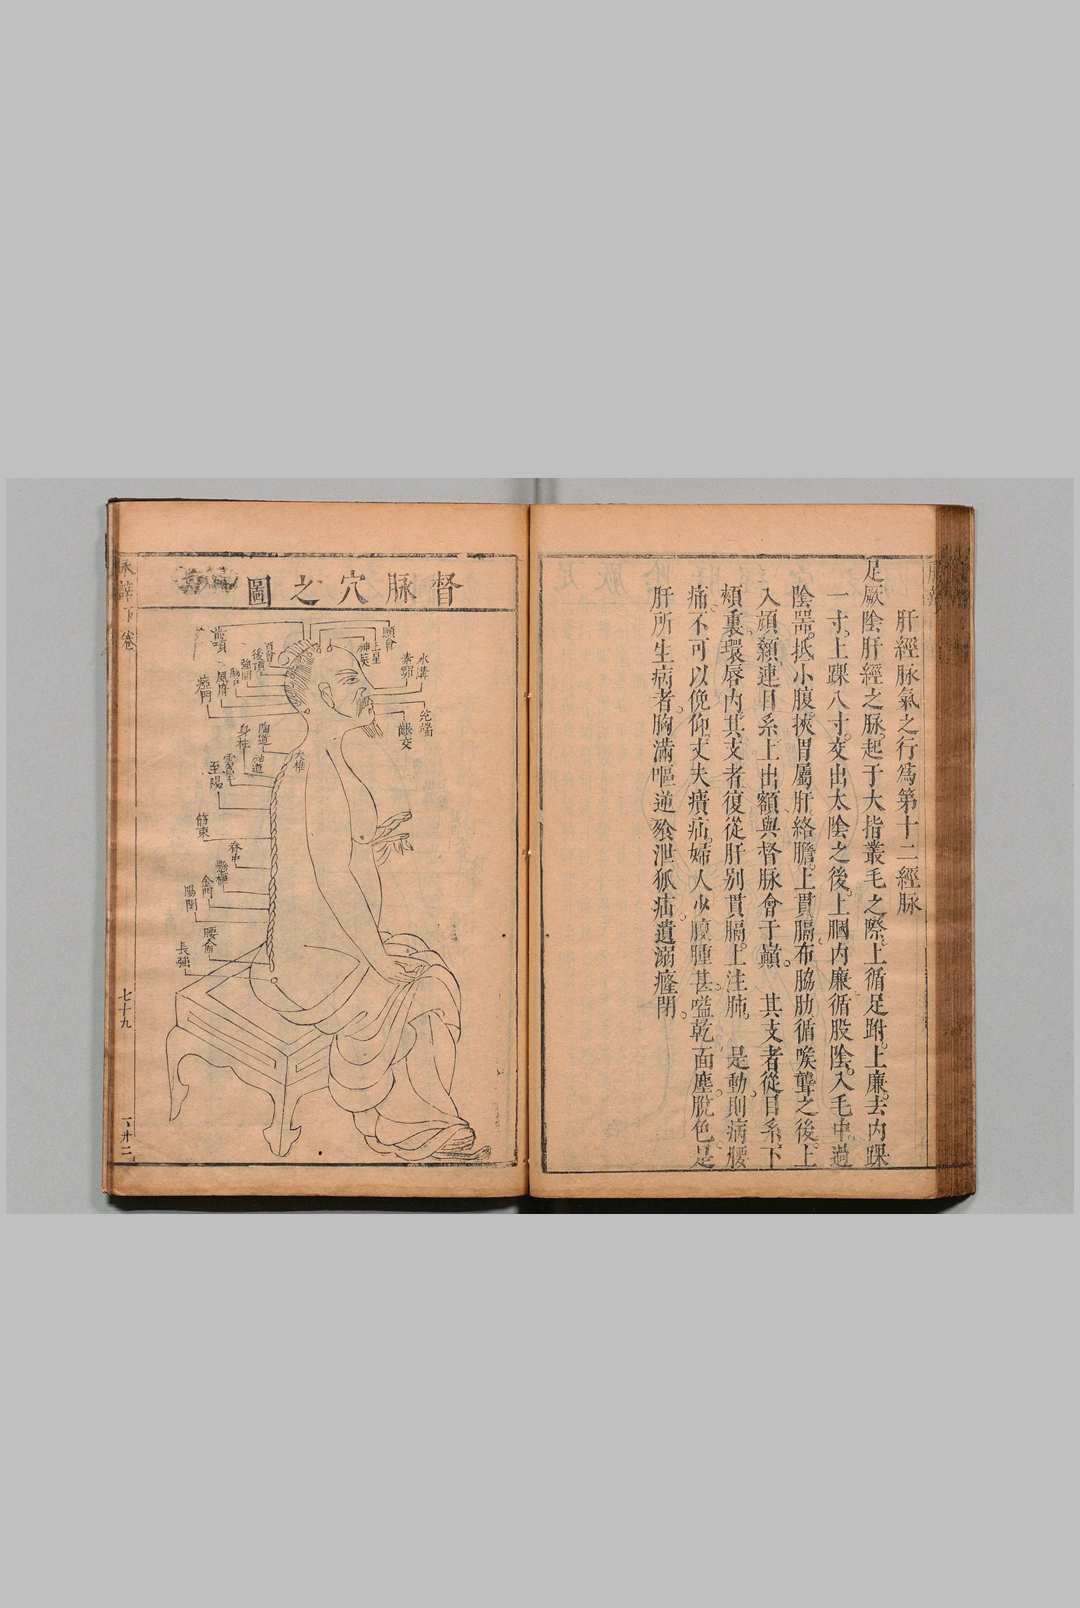 肝經脉氣之行為第十二經脉
足厥陰肝經之脉。起于大指叢毛之際。上循足跗。上廉。去內踝
一寸。上踝八寸。交出太陰之後。上膕內廉。循股陰。入毛中。過
陰器。抵小腹。挾胃屬肝絡膽。上貫膈。布脇肋。循喉嚨之後。上
入頏顙。連目系。上出額。與督脉會于巔。 其支者。從目系下
頰裏。環唇內。其支者。復從肝別貫膈。上注肺。 是動。則病腰
痛。不可以俛仰。丈夫㿉疝。婦人少腹腫。甚嗌乾。面塵脫色。是
肝所生病者。胸滿嘔逆飱泄狐疝遺溺癃閉。
督脉穴之圖
顖會
上星
神庭
水溝
素窌
兌端
齦交
百會
後頂
強間
腦戶
風府
瘂門
大椎
陶道
身柱
神道
靈臺
至陽
筋束
脊中
懸樞
命門
陽關
腰俞
長強
下卷
七十九